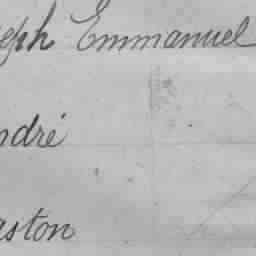 eph Emmanuel
ndré
aston